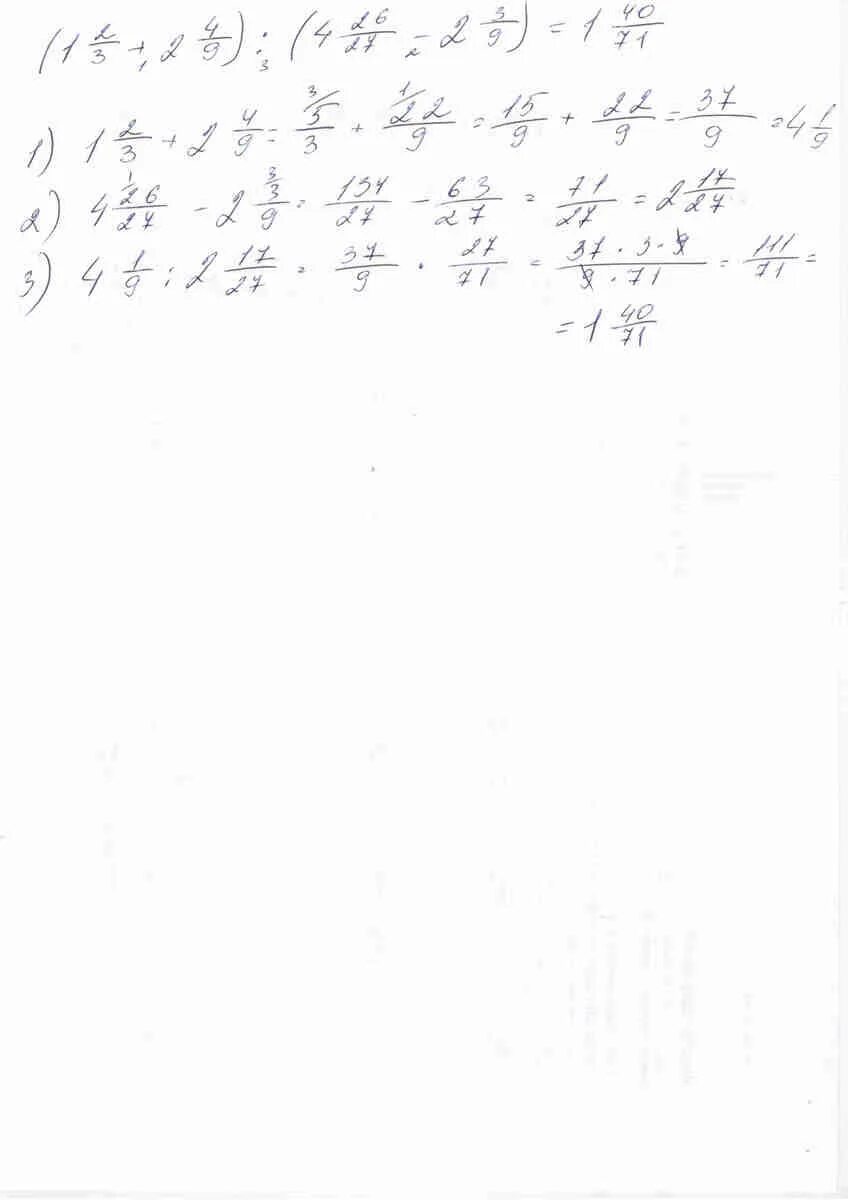 (1 2/3 + 2 4/9) : (4 26/27 - 2 3/9) = 1 40/71
1 2 3
1) 1 2/3 + 2 4/9 = 5/3 + 22/9 = 15/9 + 22/9 = 37/9 = 4 1/9
2) 4 26/27 - 2 3/9 = 134/27 - 63/27 = 71/27 = 2 17/27
3) 4 1/9 : 2 17/27 = 37/9 · 27/71 = 37 · 3 · 9/9 · 71 = 111/71 =
= 1 40/71